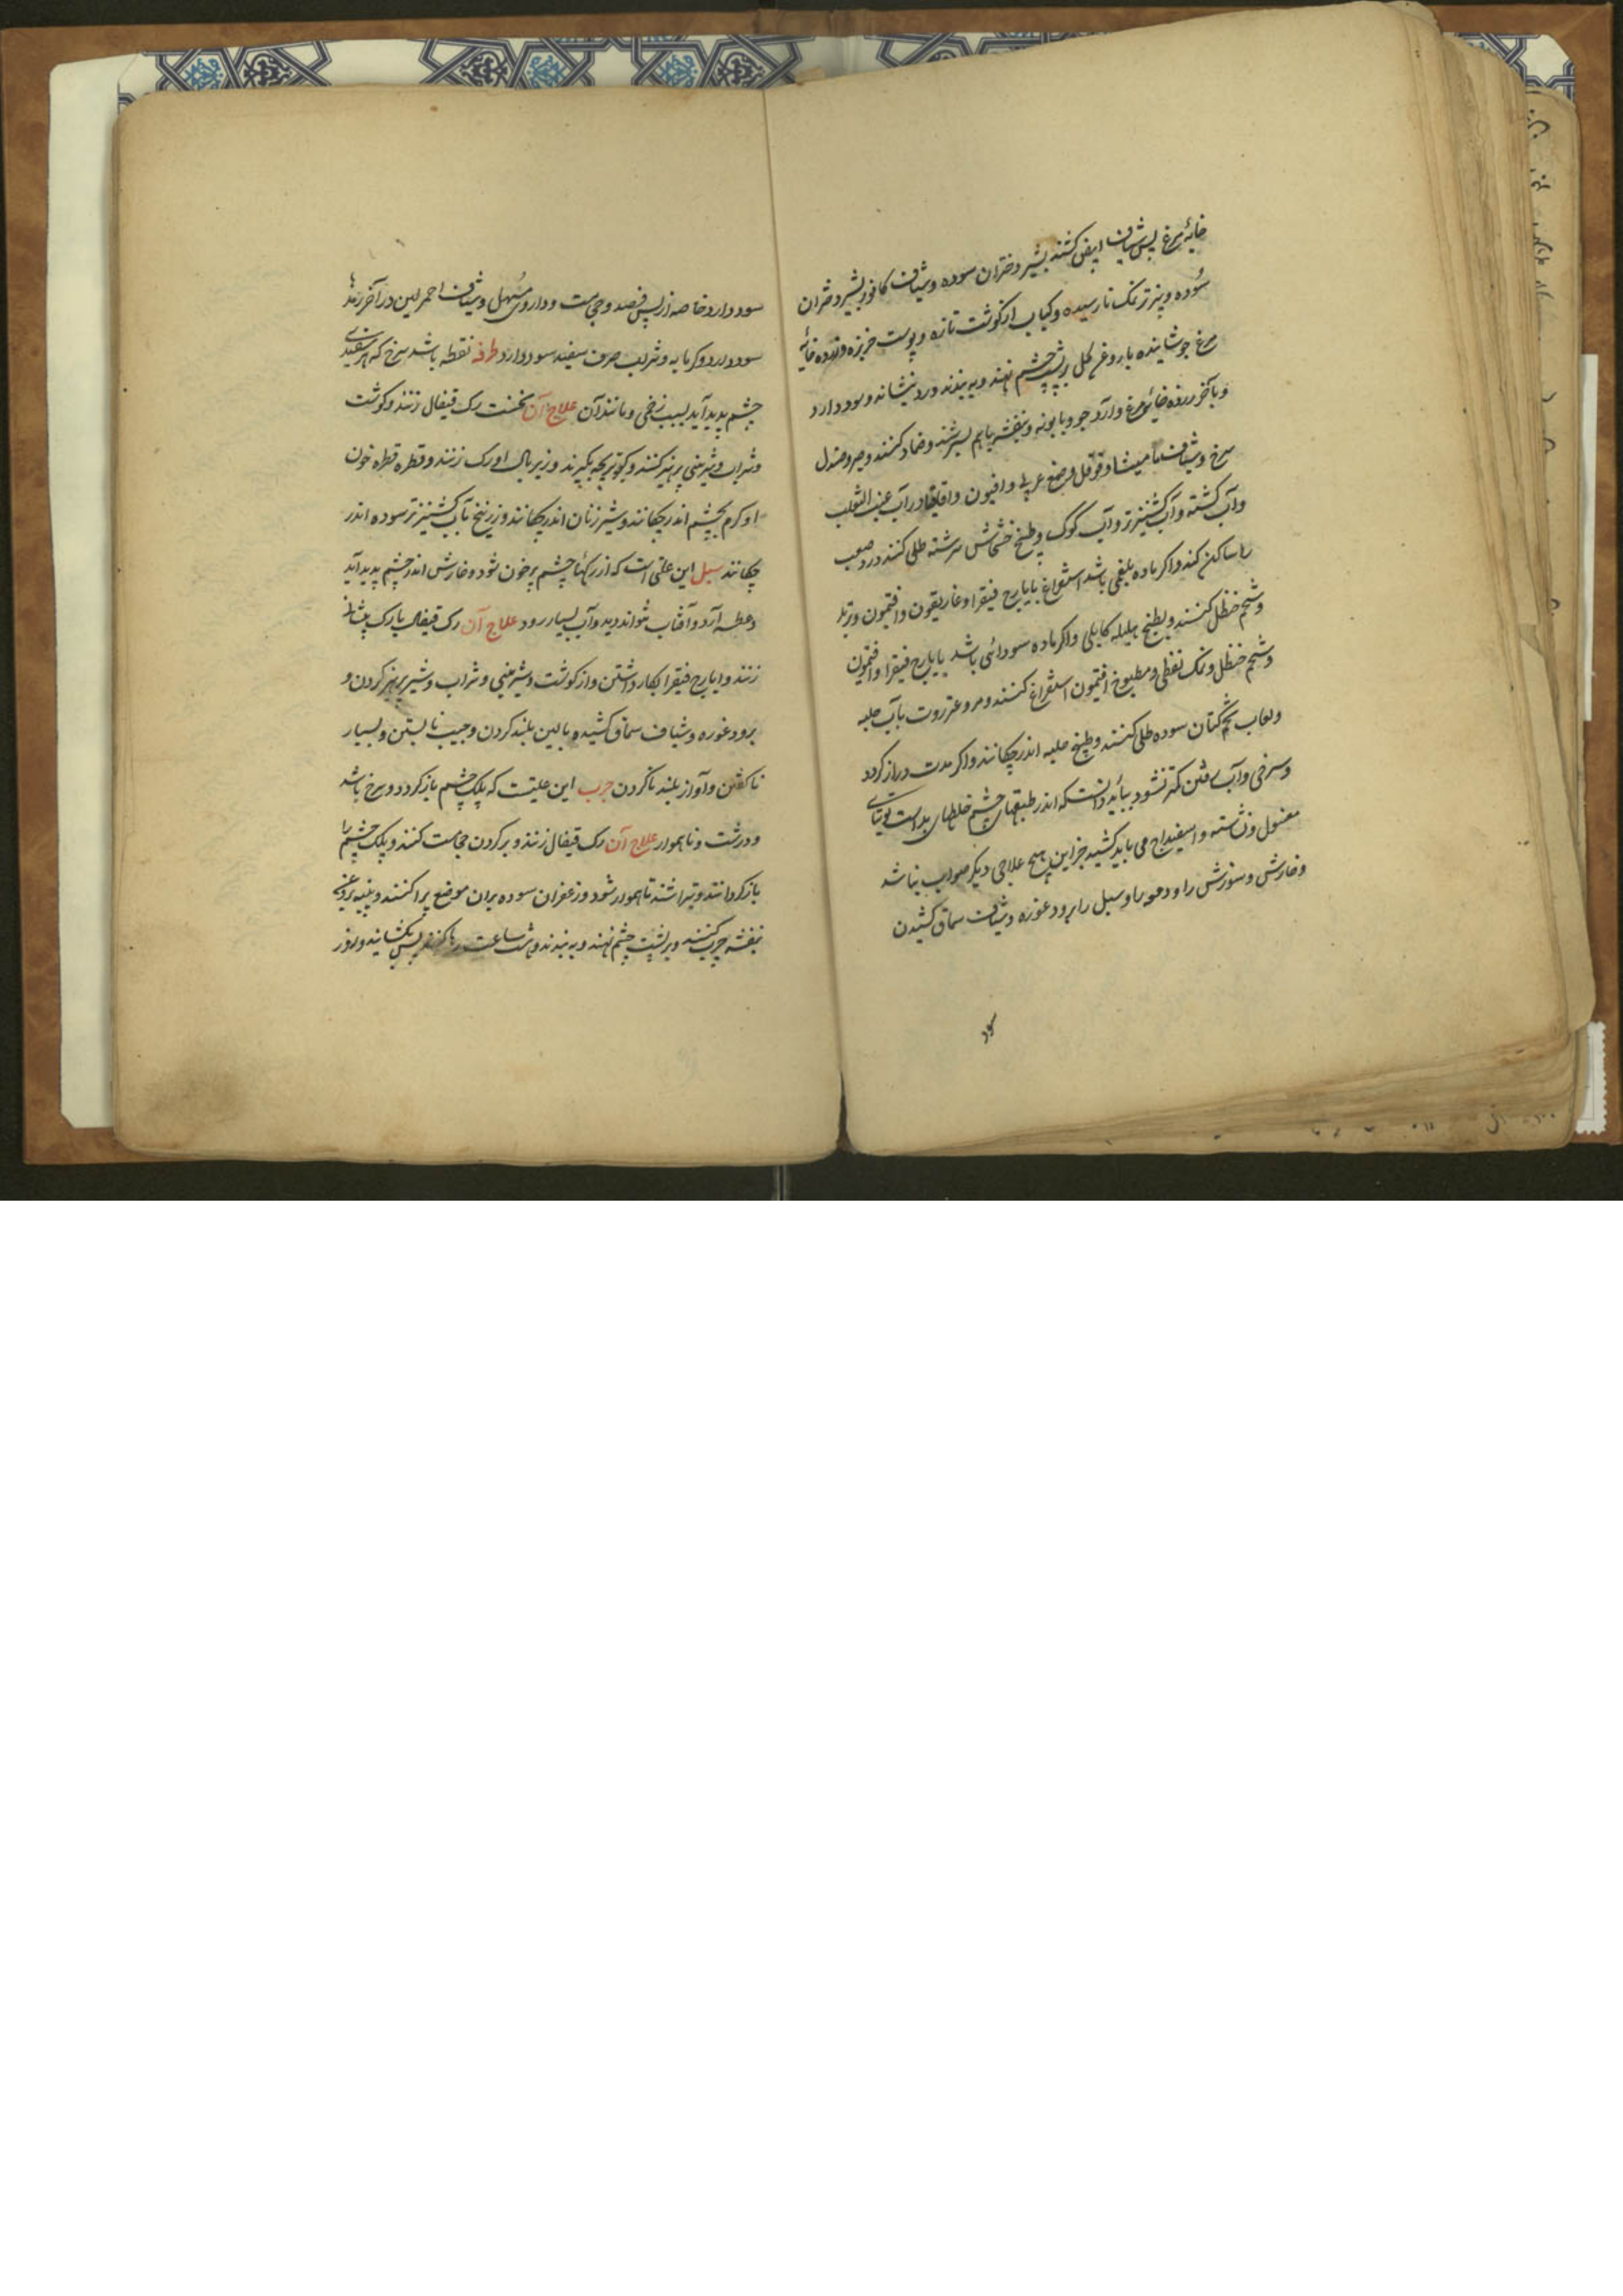 خایهٔ مرغ پس شیاف ابیض کشند بشیر دختران سوده وشیاف کافور بشیر دختران
سُوده وپنیر تر نمک نارسیده وکباب از گوشت تازه وپوست خربزه وزرده خایهٔ
مرغ جوشانیده با روغن گل بر پشت چشم نهند وبه بندند درد بنشاند وسود دارد
وبآخر زرده خایهٔ مرغ وآرد جو وبابونه وبنفشه باهم بسرشند وضماد کنند وصبر وصندل
سرخ وشیاف مامیشا وفوفل وصمغ عربی وافیون واقاقیا در آب عنب الثعلب
وآب کشنه وآب کشنیز تر وآب کوک وطبیخ خشخاش سرشته طلی کنند درد صعب
را ساکن کند واگر ماده بلغمی باشد استفراغ بایارج فیقرا وغاریقون وافتیمون وتربد
وشحم حنظل کنند وبطبیخ هلیله کابلی واگر ماده سودائی باشد بایارج فیقرا وافتیمون
وشحم حنظل ونمک نفطی ومطبوخ افتیمون استفراغ کنند ومر وعنزروت بآب حلبه
ولعاب تخم کتان سوده طلی کنند وطبیخ حلبه اندر چکانند واگر مدت دراز گردد
وسرخی وآب رفتن کمتر نشود بباید دانست که اندر طبقهای چشم خلطهای بد است توتیای
مغسول ونشاسته واسفیداج می باید کشید جز این هیچ علاجی دیگر صواب نباشد
وخارش وسوزش را ودمعه را وسبل را برود غوره وشیاف سماق کشیدن
سود
سود دارد خاصه از پس فصد وحجامت وداروی مُسهل وشیاف احمر لین در آخر رمدها
سود دارد وگرمابه وشراب صرف سفید سود دارد طرفه نقطه باشد سرخ که اندر سفیدی
چشم پدید آید بسبب زخمی ومانند آن علاج آن نخست رگ قیفال زنند وگوشت
وشراب وشیرینی پرهیز کنند وکبوتر بچه بگیرند وزیر بال او رگ زنند وقطره قطره خون
او گرم بچشم اندر چکانند وشیر زنان اندر چکانند وزرنیخ بآب کشنیز تر سوده اندر
چکانند سبل این علتی است که از رگها چشم پر خون شود وخارش اندر چشم پدید آید
وعطسه آرد وآفتاب نتواند دید وآب بسیار رود علاج آن رگ قیفال یا رگ پیشانی
زنند وایارج فیقرا بکار داشتن واز گوشت وشیرینی وشراب وشیر پرهیز کردن و
برود غوره وشیاف سماق کشیدن وبالین بلند کردن وجیب نابستن وبسیار
ناگفتن وآواز بلند ناکردن جرب این علتیست که پلک چشم باز گردد وسرخ باشد
ودرشت وناهموار علاج آن رگ قیفال زنند وبر گردن حجامت کنند وپلک چشم را
باز گردانند وبتراشند تا هموار شود وزعفران سوده بران موضع پراکنند وپنبه بروغن
بنفشه چرب کنند وبر پشت چشم نهند وبه بندند وشت ساعت رها کنند پس بگشایند وروز